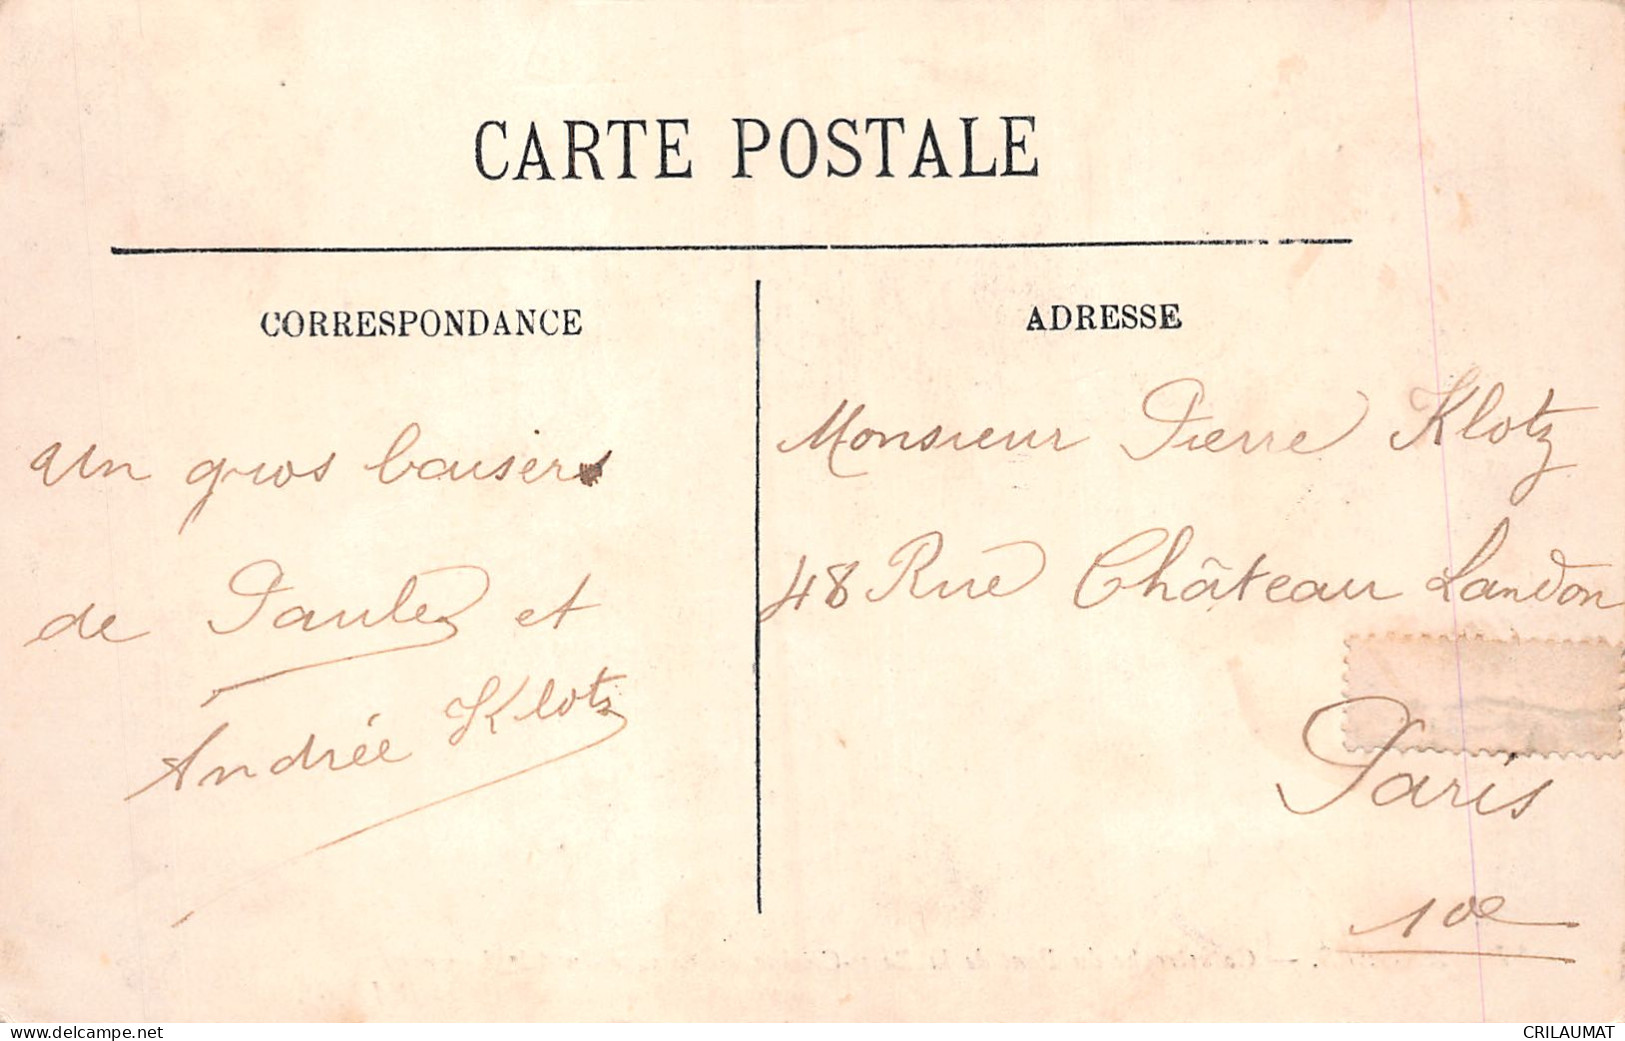 CARTE POSTALE
CORRESPONDANCE
un gros baiser
de Paule et
Andrée Klotz
ADRESSE
Monsieur Pierre Klotz
48 Rue Château Landon
Paris
10e
www.delcampe.net
CRILAUMAT